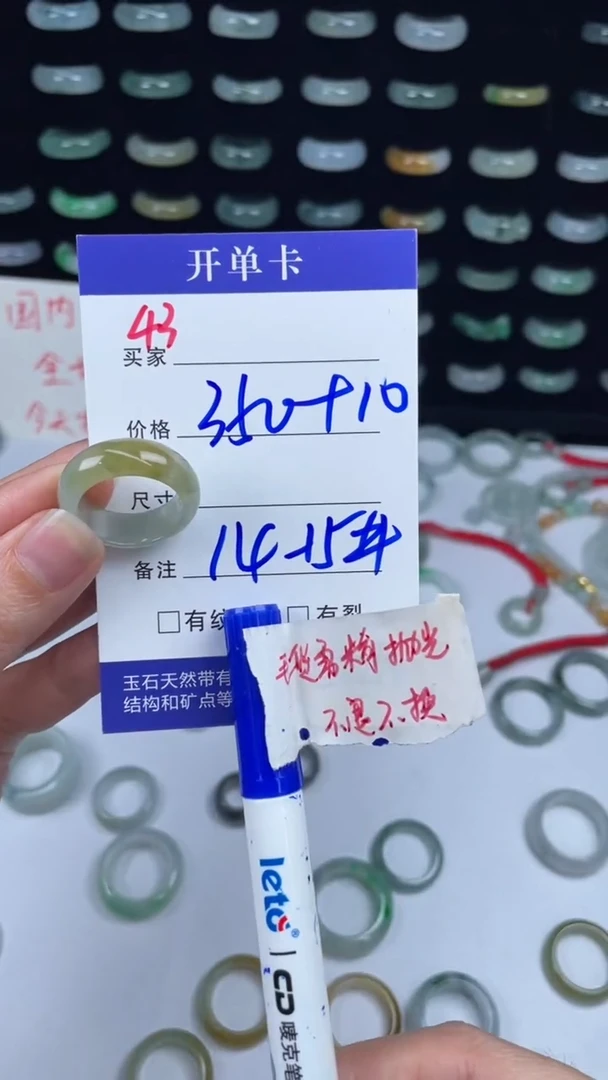 开单卡
43
买家
350+10
价格
尺寸
14-15井
备注
□有纹 □有裂
玉石天然带有
结构和矿点等
精抛光
不退不换
国内
leto®
CD 唛克笔